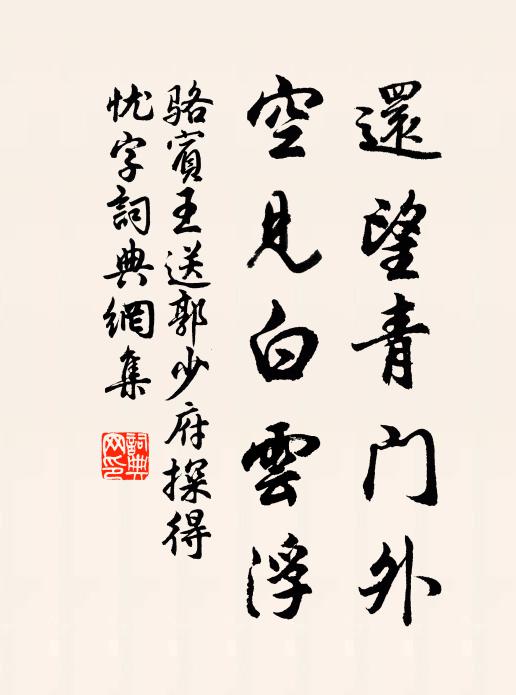 還望青門外
空見白雲浮
駱賓王送郭少府探得
忧字詞典網集
詞典网印